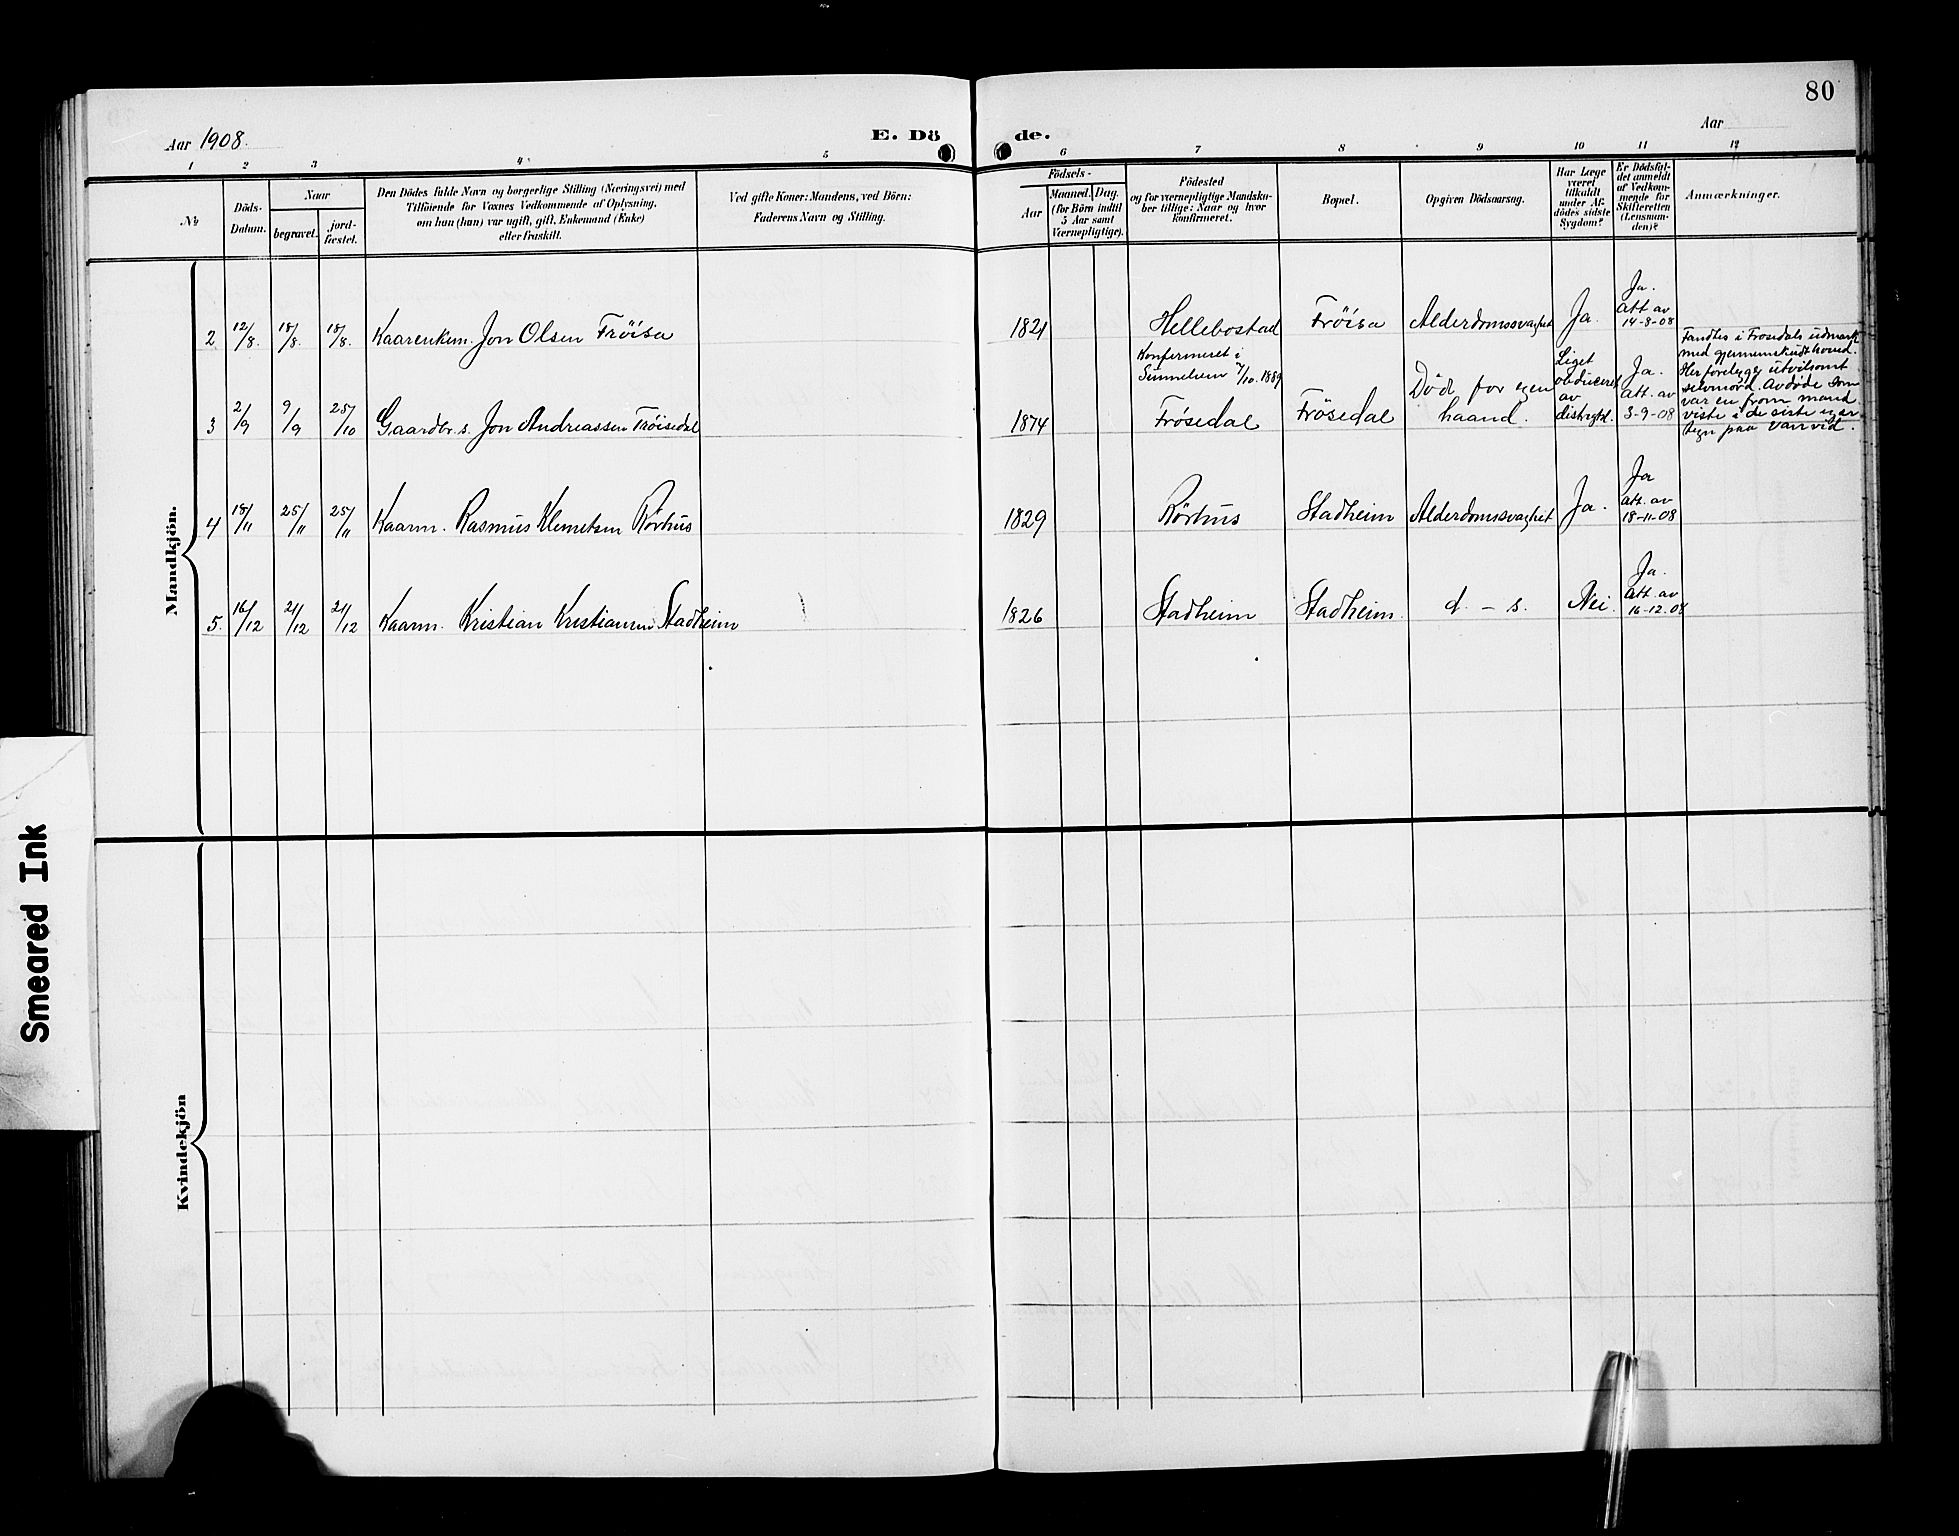 80
Aar 1908.
E. Dö de.
Aar
1 2 3 4 5 6 7 8 9 10 11 12
№
Döds-
Datum.
Naar
begravet.
jord-
fæstet.
Den Dödes fulde Navn og borgerlige Stilling (Næringsvei) med
Tilföiende for Voxnes Vedkommende af Oplysning,
om han (hun) var ugift, gift, Enkemand (Enke)
eller fraskilt.
Ved gifte Koner: Mandens, ved Börn:
Faderens Navn og Stilling.
Födsels-
Aar
Maaned. Dag.
(for Börn indtil
5 Aar samt
Værnepligtige).
Födested
og for værnepligtige Mandska-
ber tillige: Naar og hvor
konfirmeret.
Bopæl.
Opgiven Dödsaarsag.
Har Læge
været
tilkaldt
under Af-
dödes sidste
Sygdom?
Er Dödsfal-
det anmeldt
af Vedkom-
mende for
Skifteretten
(Lensman-
den)?
Anmærkninger.
Mandkjön.
2 12/8. 18/8. 18/8. Kaarenkem. Jon Olsen Fröisa 1821 Hellebostad Fröisa Alderdomssvaghet Ja. Ja.
att av
14-8-08
3 2/9 9/9 25/10 Gaardbr. s. Jon Andreassen Fröisedal 1874 Konfirmeret i
Sunnelven 7/10. 1889
Frøsedal Frösedal Döde for egen
haand. Liget
obduceret
av
distrgtsl. Ja.
att. av
3-9-08 Fandtes i Frøsedals udmark
med gjennemskudt hoved.
Her foreligger utvilsomt
selvmord. Avdøde som
var en from mand
viste i de siste uger
tegn paa vanvid.
4 18/11 25/11 25/11 Kaarm. Rasmus Klemetsen Rørhus 1829 Rørhus Stadheim Alderdomssvaghet Ja. Ja
att. av
18-11-08
5. 16/12 21/12 21/12 Kaarm. Kristian Kristiansen Stadheim 1826 Stadheim Stadheim. d. – s. Nei. Ja.
att. av
16-12.08
Kvindekjön
Smeared Ink